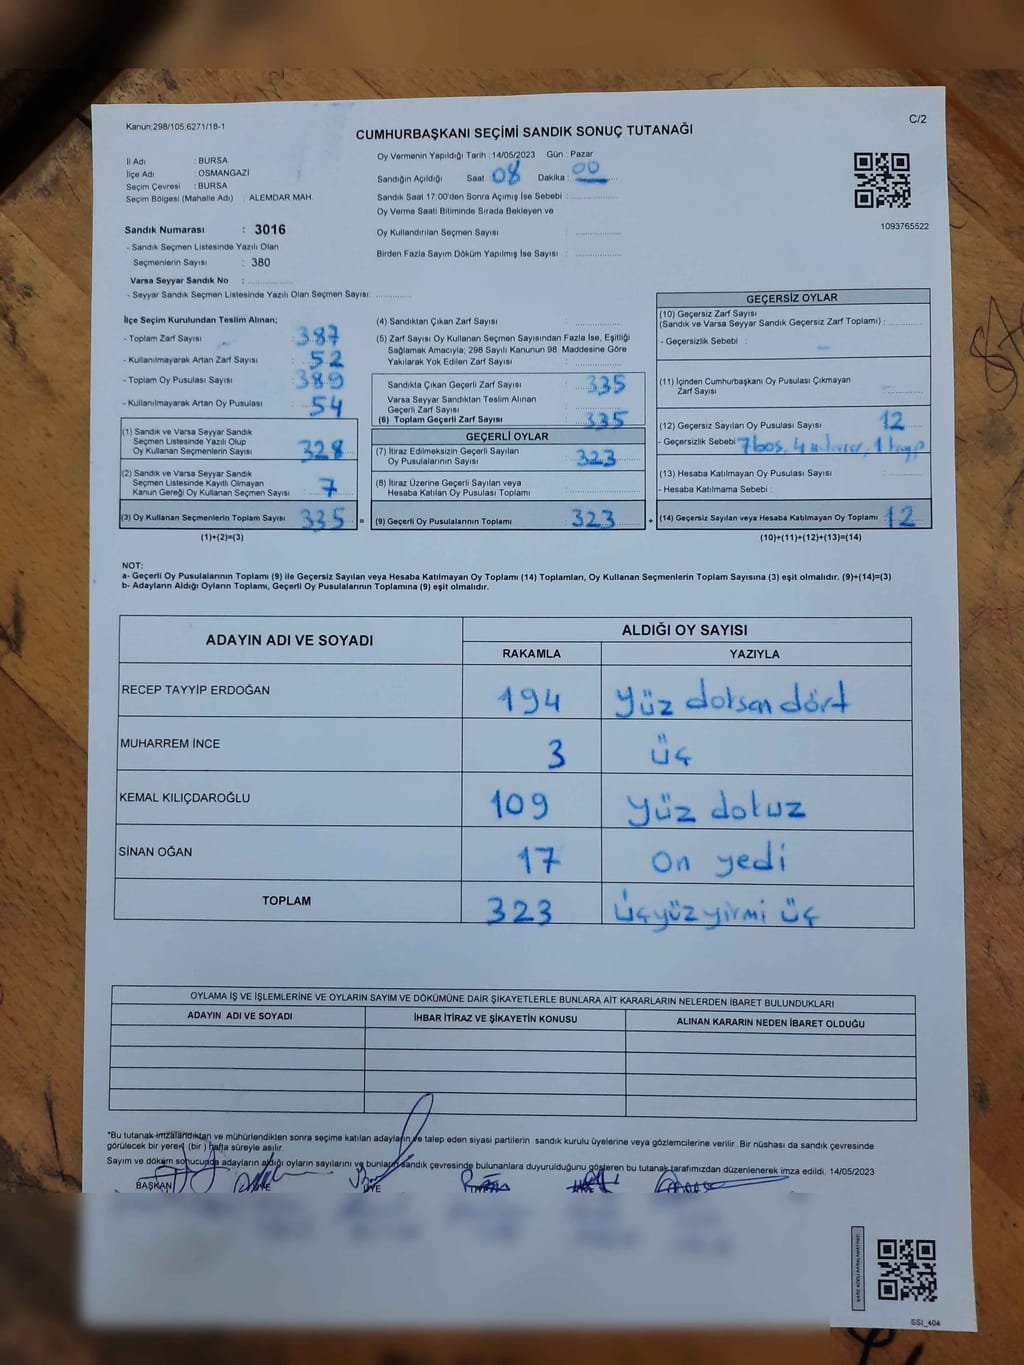 Kanun;298/105;6271/18-1
C/2
CUMHURBAŞKANI SEÇİMİ SANDIK SONUÇ TUTANAĞI
İl Adı : BURSA
İlçe Adı : OSMANGAZİ
Seçim Çevresi : BURSA
Seçim Bölgesi (Mahalle Adı) : ALEMDAR MAH.
Oy Vermenin Yapıldığı Tarih : 14/05/2023 Gün : Pazar
Sandığın Açıldığı Saat 08 Dakika : 00
Sandık Saat 17:00'den Sonra Açımış İse Sebebi :
Oy Verme Saati Bitiminde Sırada Bekleyen ve
Oy Kullandırılan Seçmen Sayısı :
Birden Fazla Sayım Döküm Yapılmış İse Sayısı :
1093765522
Sandık Numarası : 3016
- Sandık Seçmen Listesinde Yazılı Olan
Seçmenlerin Sayısı : 380
Varsa Seyyar Sandık No :
- Seyyar Sandık Seçmen Listesinde Yazılı Olan Seçmen Sayısı:
İlçe Seçim Kurulundan Teslim Alınan;
- Toplam Zarf Sayısı : 387
- Kullanılmayarak Artan Zarf Sayısı : 52
- Toplam Oy Pusulası Sayısı : 389
- Kullanılmayarak Artan Oy Pusulası : 54
(1) Sandık ve Varsa Seyyar Sandık
Seçmen Listesinde Yazılı Olup
Oy Kullanan Seçmenlerin Sayısı : 328
(2) Sandık ve Varsa Seyyar Sandık
Seçmen Listesinde Kayıtlı Olmayan
Kanun Gereği Oy Kullanan Seçmen Sayısı : 7
(3) Oy Kullanan Seçmenlerin Toplam Sayısı : 335 =
(1)+(2)=(3)
(4) Sandıktan Çıkan Zarf Sayısı :
(5) Zarf Sayısı Oy Kullanan Seçmen Sayısından Fazla İse, Eşitliği
Sağlamak Amacıyla; 298 Sayılı Kanunun 98. Maddesine Göre
Yakılarak Yok Edilen Zarf Sayısı :
Sandıkta Çıkan Geçerli Zarf Sayısı : 335
Varsa Seyyar Sandıktan Teslim Alınan
Geçerli Zarf Sayısı :
(6) Toplam Geçerli Zarf Sayısı : 335
GEÇERLİ OYLAR
(7) İtiraz Edilmeksizin Geçerli Sayılan
Oy Pusulalarının Sayısı : 323
(8) İtiraz Üzerine Geçerli Sayılan veya
Hesaba Katılan Oy Pusulası Toplamı :
(9) Geçerli Oy Pusulalarının Toplamı : 323 +
GEÇERSİZ OYLAR
(10) Geçersiz Zarf Sayısı
(Sandık ve Varsa Seyyar Sandık Geçersiz Zarf Toplamı) :
- Geçersizlik Sebebi :
(11) İçinden Cumhurbaşkanı Oy Pusulası Çıkmayan
Zarf Sayısı :
(12) Geçersiz Sayılan Oy Pusulası Sayısı : 12
- Geçersizlik Sebebi 7 boş, 4 1
(13) Hesaba Katılmayan Oy Pusulası Sayısı :
- Hesaba Katılmama Sebebi :
(14) Geçersiz Sayılan veya Hesaba Katılmayan Oy Toplamı : 12
(10)+(11)+(12)+(13)=(14)
NOT:
a- Geçerli Oy Pusulalarının Toplamı (9) ile Geçersiz Sayılan veya Hesaba Katılmayan Oy Toplamı (14) Toplamları, Oy Kullanan Seçmenlerin Toplam Sayısına (3) eşit olmalıdır. (9)+(14)=(3)
b- Adayların Aldığı Oyların Toplamı, Geçerli Oy Pusulalarının Toplamına (9) eşit olmalıdır.
ADAYIN ADI VE SOYADI
ALDIĞI OY SAYISI
RAKAMLA YAZIYLA
RECEP TAYYİP ERDOĞAN 194 yüz doksan dört
MUHARREM İNCE 3 üç
KEMAL KILIÇDAROĞLU 109 yüz dokuz
SİNAN OĞAN 17 on yedi
TOPLAM 323 üçyüzyirmi üç
OYLAMA İŞ VE İŞLEMLERİNE VE OYLARIN SAYIM VE DÖKÜMÜNE DAİR ŞİKAYETLERLE BUNLARA AİT KARARLARIN NELERDEN İBARET BULUNDUKLARI
ADAYIN ADI VE SOYADI İHBAR İTİRAZ VE ŞİKAYETİN KONUSU ALINAN KARARIN NEDEN İBARET OLDUĞU
*Bu tutanak imzalandıktan ve mühürlendikten sonra seçime katılan adayların ve talep eden siyasi partilerin sandık kurulu üyelerine veya gözlemcilerine verilir. Bir nüshası da sandık çevresinde
görülecek bir yere (bir) hafta süreyle asılır.
Sayım ve döküm sonucunda adayların aldığı oyların sayılarını ve bunların sandık çevresinde bulunanlara duyurulduğunu gösteren bu tutanak tarafımızdan düzenlenerek imza edildi. 14/05/2023
BAŞKAN ÜYE ÜYE
SSİ_404